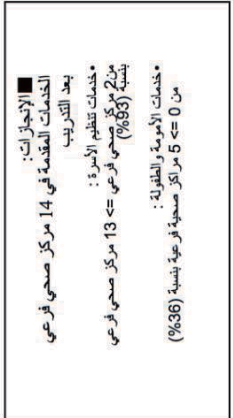 ■ الإنجازات:
الخدمات المقدمة في 14 مركز صحي فرعي
بعد التدريب
•خدمات تنظيم الأسرة :
من2 مركز صحي فرعي => 13 مركز صحي فرعي
بنسبة (93%)
•خدمات الأمومة والطفولة :
من 0 => 5 مراكز صحية فرعية بنسبة (36%)